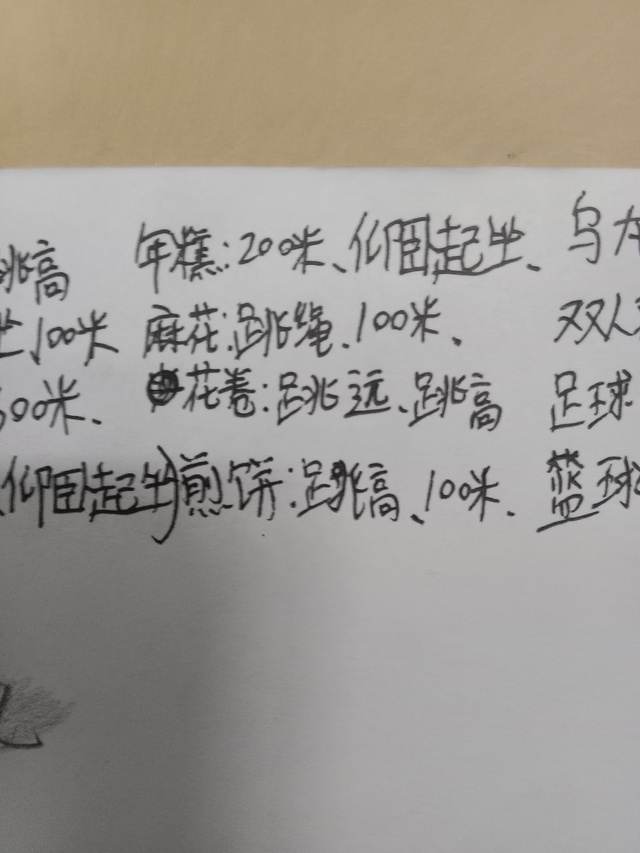 跳高 年糕:200米、仰卧起坐、 乌
坐、100米 麻花:跳绳、100米、 双人
00米、 花卷:跳远、跳高 足球
仰卧起坐)煎饼:跳高、100米、 篮球